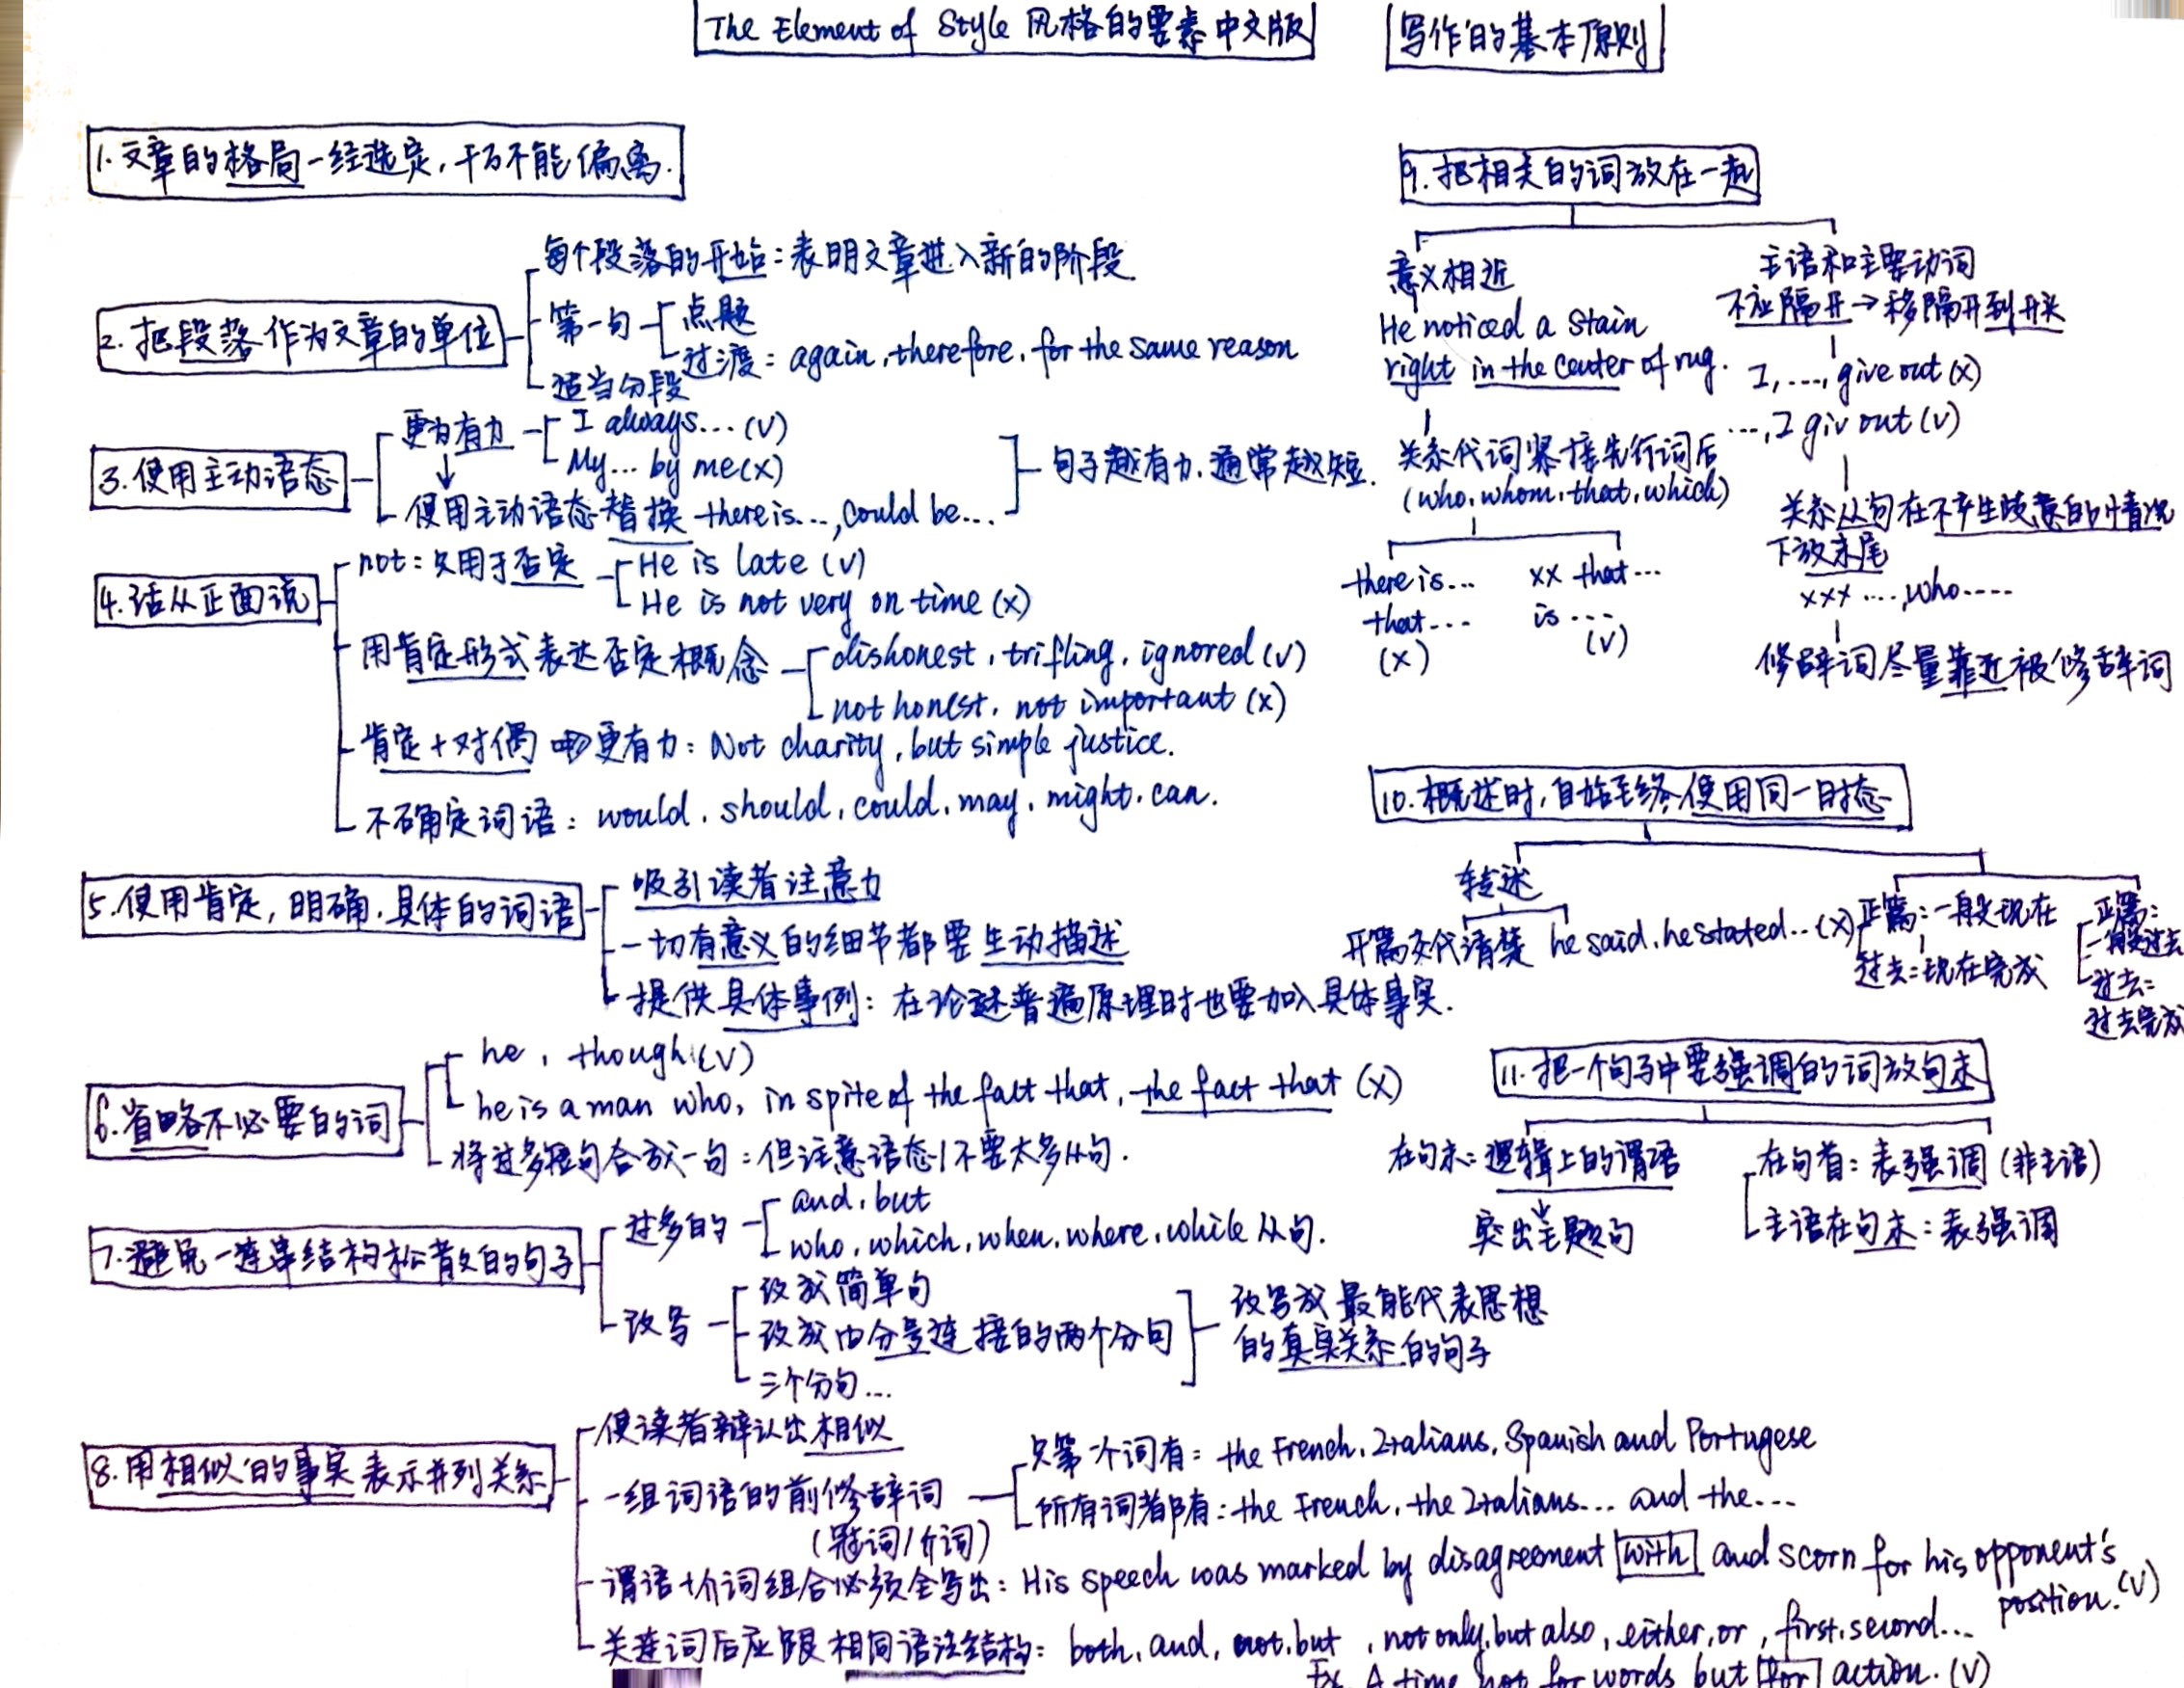 The Element of Style 风格的要素中文版
写作的基本原则
1.文章的格局一经选定,千万不能偏离.
2.把段落作为文章的单位
每个段落的开始:表明文章进入新的阶段
第一句
点题
过渡: again, therefore, for the same reason
适当分段
3.使用主动语态
更为有力
I always... (V)
My... by me (X)
使用主动语态替换 there is..., could be...
句子越有力,通常越短.
4.话从正面说
not:只用于否定
He is late (V)
He is not very on time (X)
用肯定形式表达否定概念
dishonest, trifling, ignored (V)
not honest, not important (X)
肯定+对偶 更有力: Not charity, but simple justice.
不确定词语: would, should, could, may, might, can.
5.使用肯定,明确,具体的词语
吸引读者注意力
一切有意义的细节都要生动描述
提供具体事例:在论述普遍原理时也要加入具体事实.
6.省略不必要的词
he, though (V)
he is a man who, in spite of the fact that, the fact that (X)
将过多短句合成一句:但注意语态/不要太多从句.
7.避免一连串结构松散的句子
过多的
and, but
who, which, when, where, while 从句.
改写
改成简单句
改成由分号连接的两个分句
三个分句...
改写成最能代表思想
的真实关系的句子
8.用相似的事实表示并列关系
使读者辩认出相似
一组词语的前修辞词
(冠词/介词)
只第一个词有: the French, Italians, Spanish and Portugese
所有词都有: the French, the Italians... and the...
谓语+介词组合必须全写出: His speech was marked by disagreement with and scorn for his opponent's
position. (V)
关连词后应跟相同语法结构: both, and, not, but, not only, but also, either, or, first, second...
Ex. A time not for words but for action. (V)
9.把相关的词放在一起
意义相近
He noticed a stain
right in the center of rug.
关系代词紧接先行词后
(who, whom, that, which)
there is...
that...
(X)
xx that...
is ...
(V)
主语和主要动词
不应隔开→移隔开到开头
I, ..., give out (X)
..., I giv out (V)
关系从句在不产生歧意的情况
下放末尾
xxx ..., who....
修辞词尽量靠近被修辞词
10.概述时,自始至终使用同一时态
转述
开篇交代清楚
he said, he stated.. (X)
正篇:一般现在
过去:现在完成
正篇:
一般过去
过去:
过去完成
11.把一个句子中要强调的词放句末
在句末:逻辑上的谓语
突出主题句
在句首:表强调 (非主语)
主语在句末:表强调